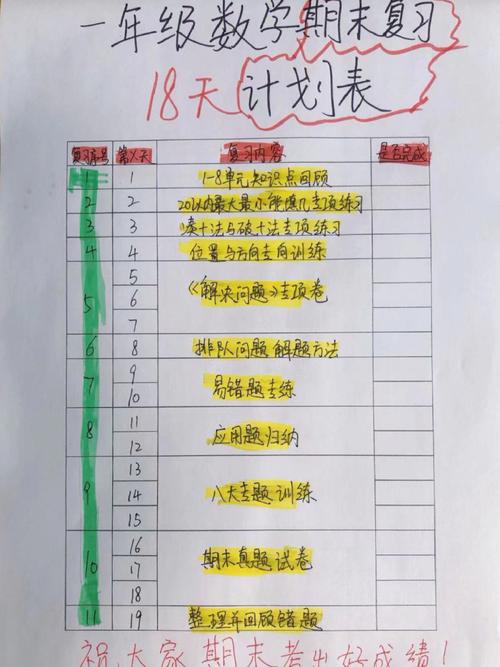 一年级数学期末复习
18天计划表
复习序号 第X天 复习内容 是否完成
1 1 1-8单元知识点回顾
2 2 20以内最大最小能填几专项练习
3 3 凑十法与破十法专项练习
4 4 位置与方向专向训练
5 5 6 7 《解决问题》专项卷
6 8 排队问题解题方法
7 9 10 易错题专练
8 11 12 应用题归纳
9 13 14 15 八大专题训练
10 16 17 18 期末真题试卷
11 19 整理并回顾错题
祝大家期末考出好成绩！